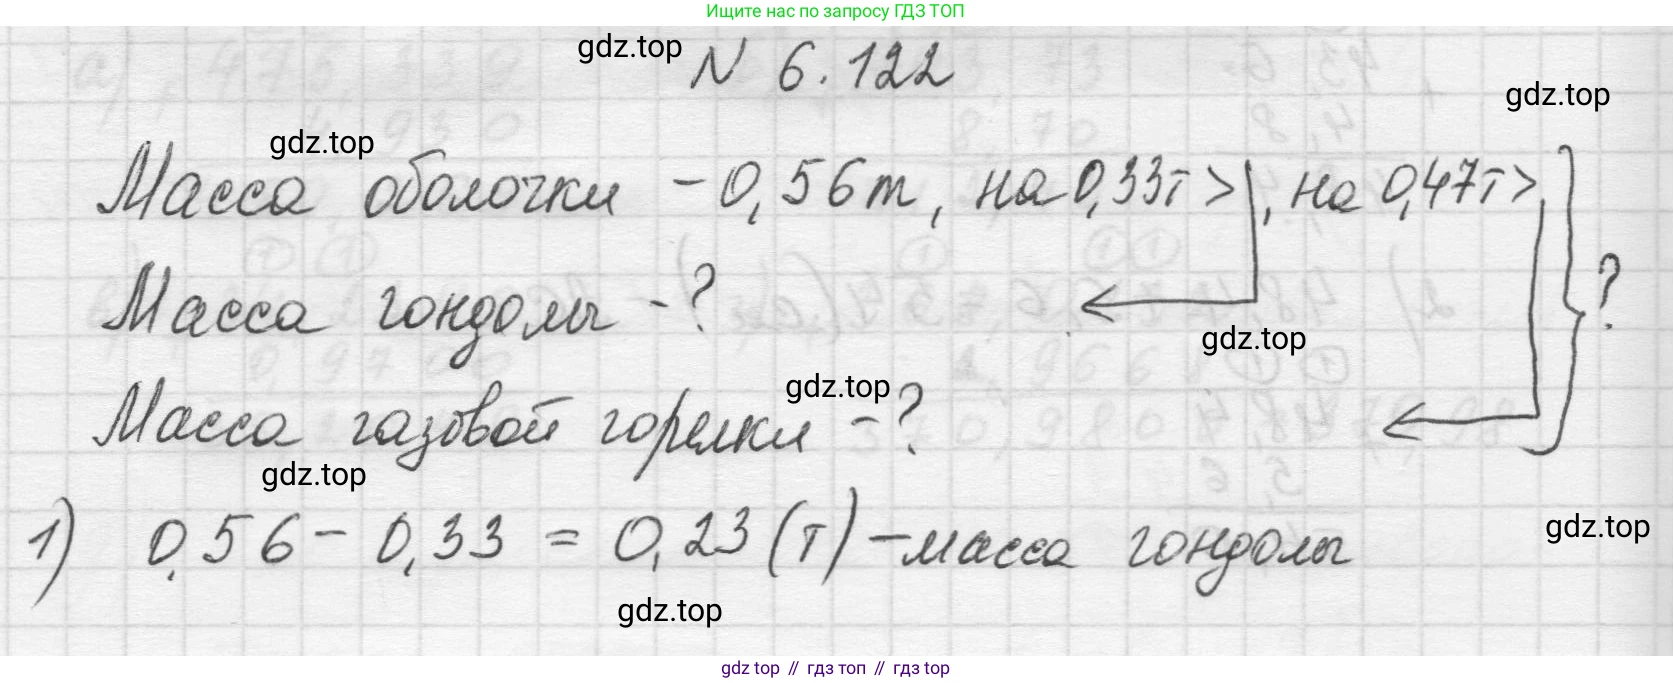 Ищите нас по запросу ГДЗ ТОП
gdz.top
N 6.122
gdz.top
gdz.top
Масса оболочки - 0,56 т, на 0,33т >, на 0,47т >
Масса гондолы - ?
?
gdz.top
gdz.top
Масса газовой горелки - ?
gdz.top
gdz.top
1) 0,56 - 0,33 = 0,23 (т) - масса гондолы
gdz.top
gdz top // гдз топ // гдз top